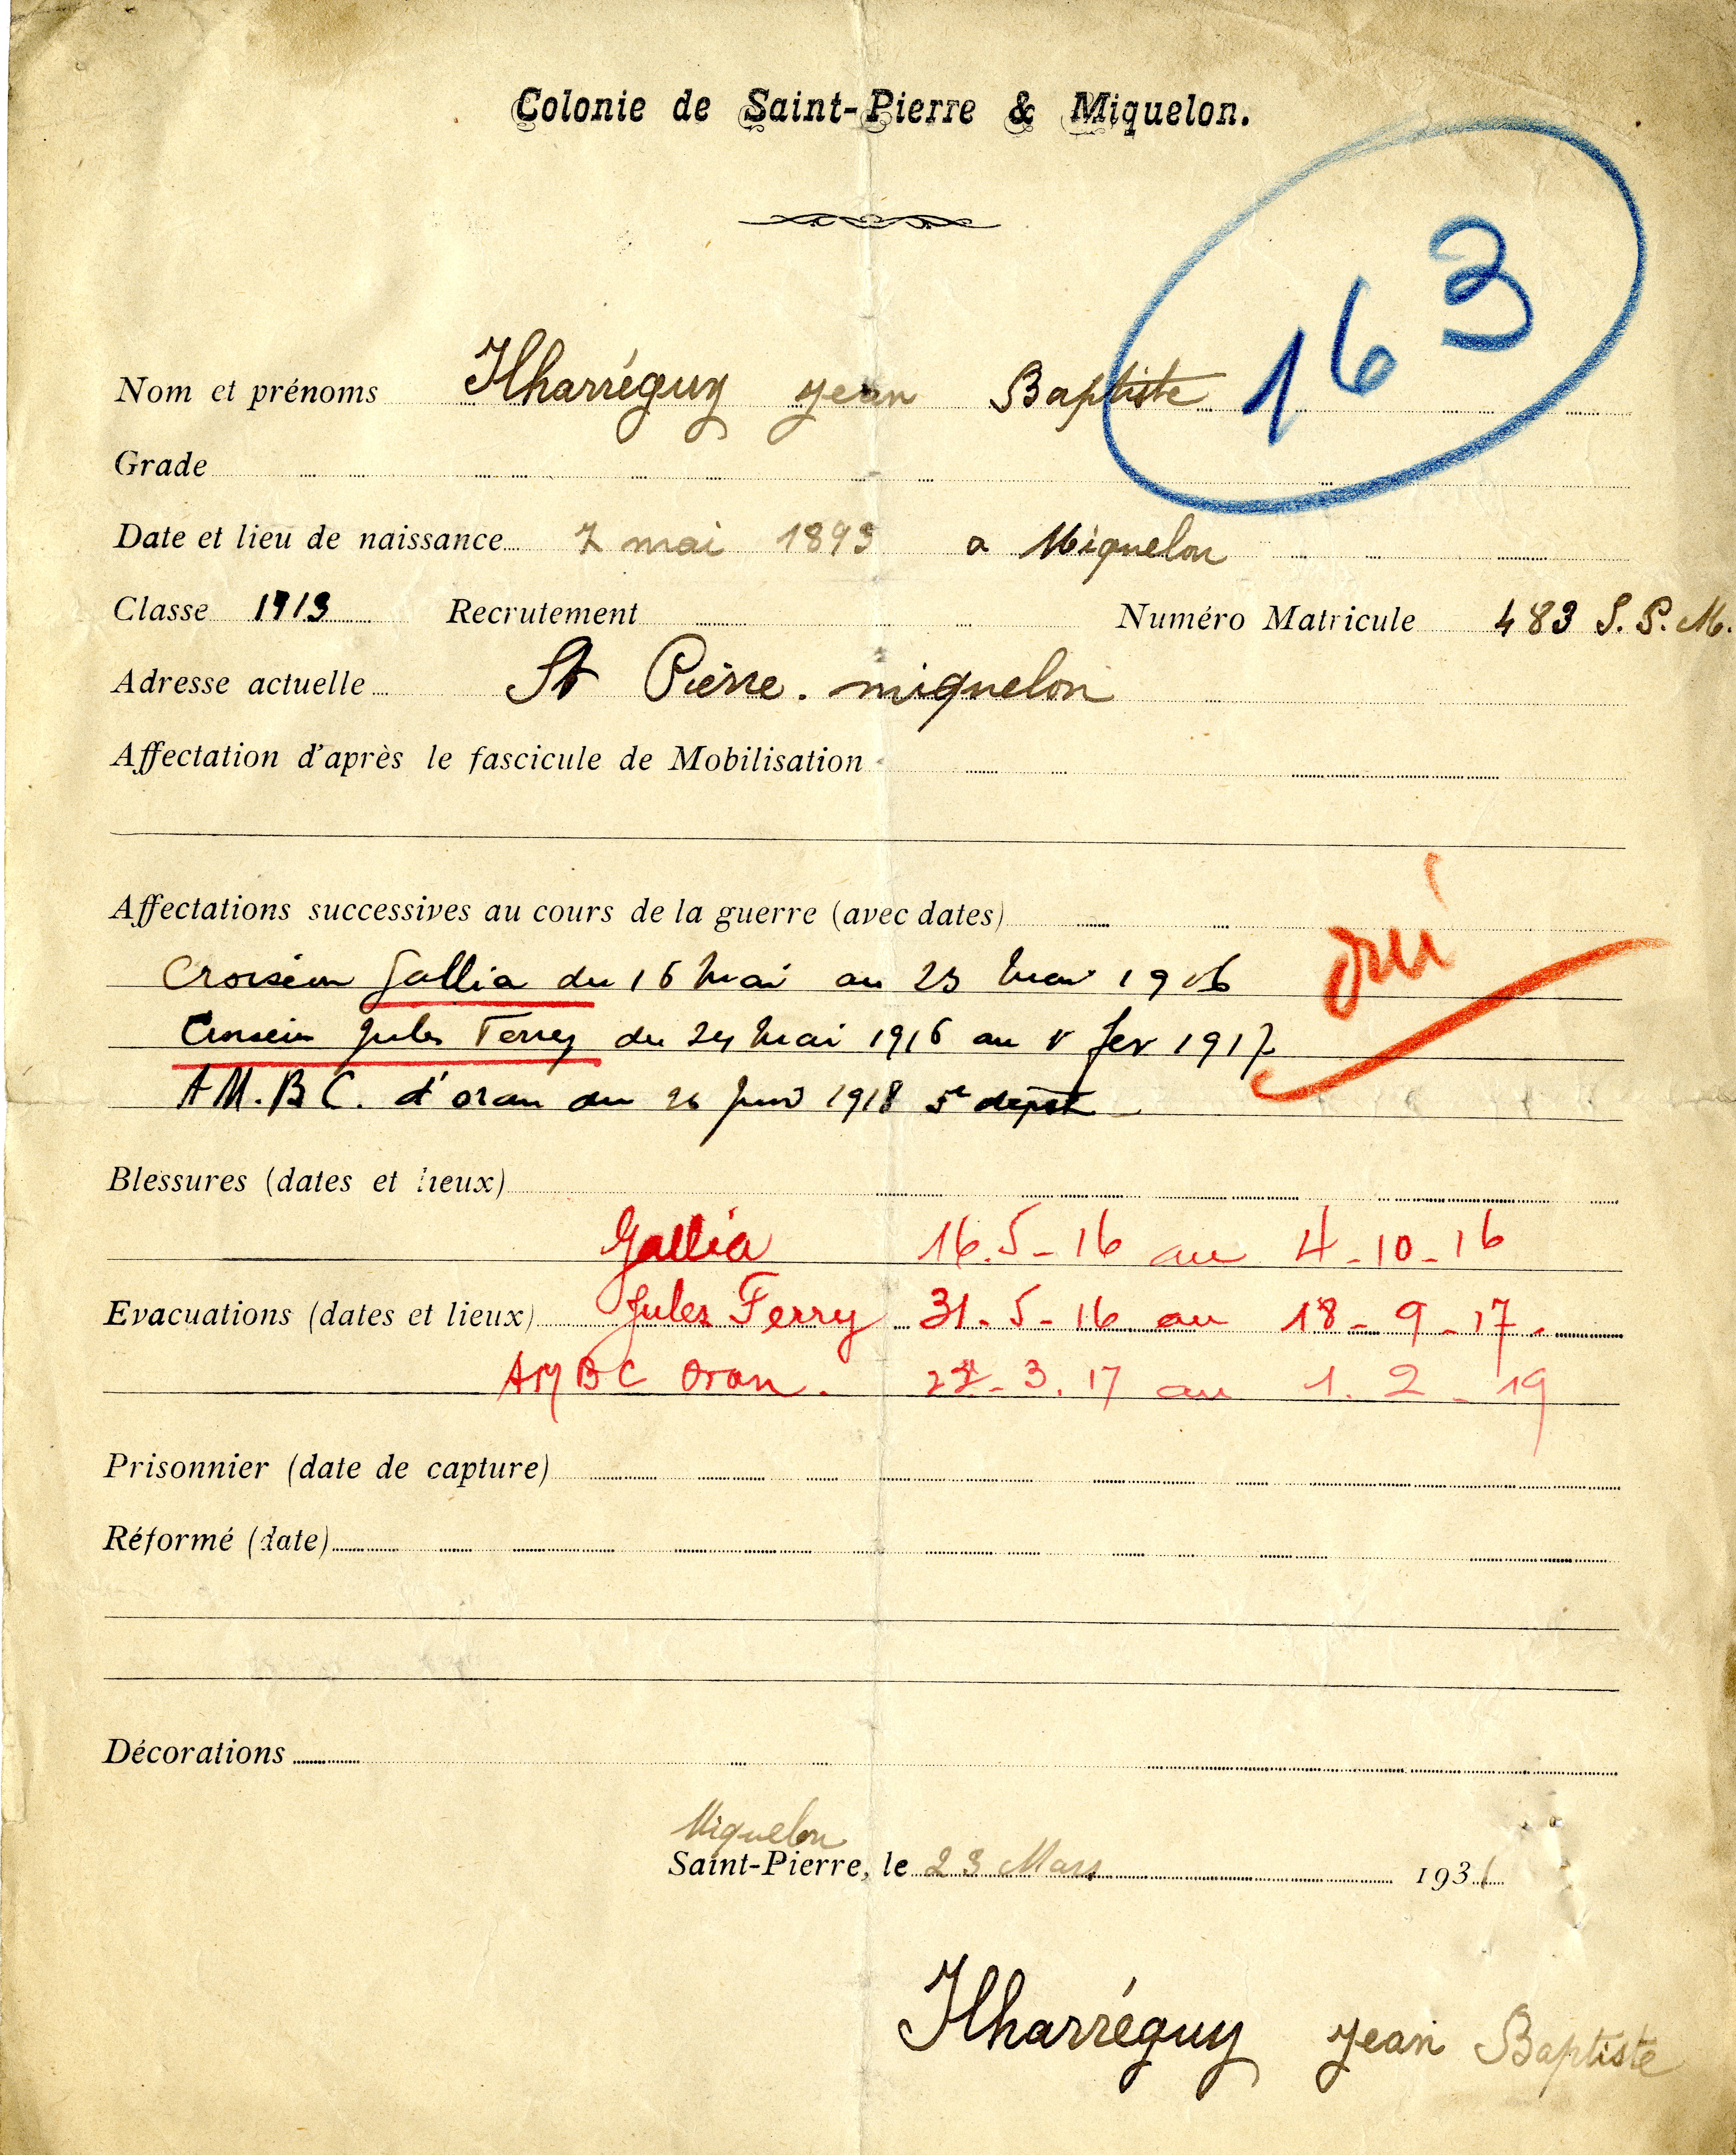 Colonie de Saint-Pierre & Miquelon.
163
Nom et prénoms Ilharréguy Jean Baptiste
Grade
Date et lieu de naissance 7 mai 1893 a Miquelon
Classe 1913 Recrutement Numéro Matricule 483 S.P.M.
Adresse actuelle St Pierre. miquelon
Affectation d'après le fascicule de Mobilisation
Affectations successives au cours de la guerre (avec dates)
oui
Croiseur Gallia du 16 Mai au 23 Mai 1916
Croiseur Jules Ferry du 24 Mai 1916 au fev 1917
A M. B C. d'oran au 26 1918 5e dépôt
Blessures (dates et lieux)
Gallia 16.5-16 au 4-10-16
Evacuations (dates et lieux) Jules Ferry 31-5-16 au 18-9-17.
AMBC Oran. 3.17 au 1.2-19
Prisonnier (date de capture)
Réformé (date)
Décorations
Miquelon
Saint-Pierre, le 23 Mars 1931
Ilharréguy Jean Baptiste